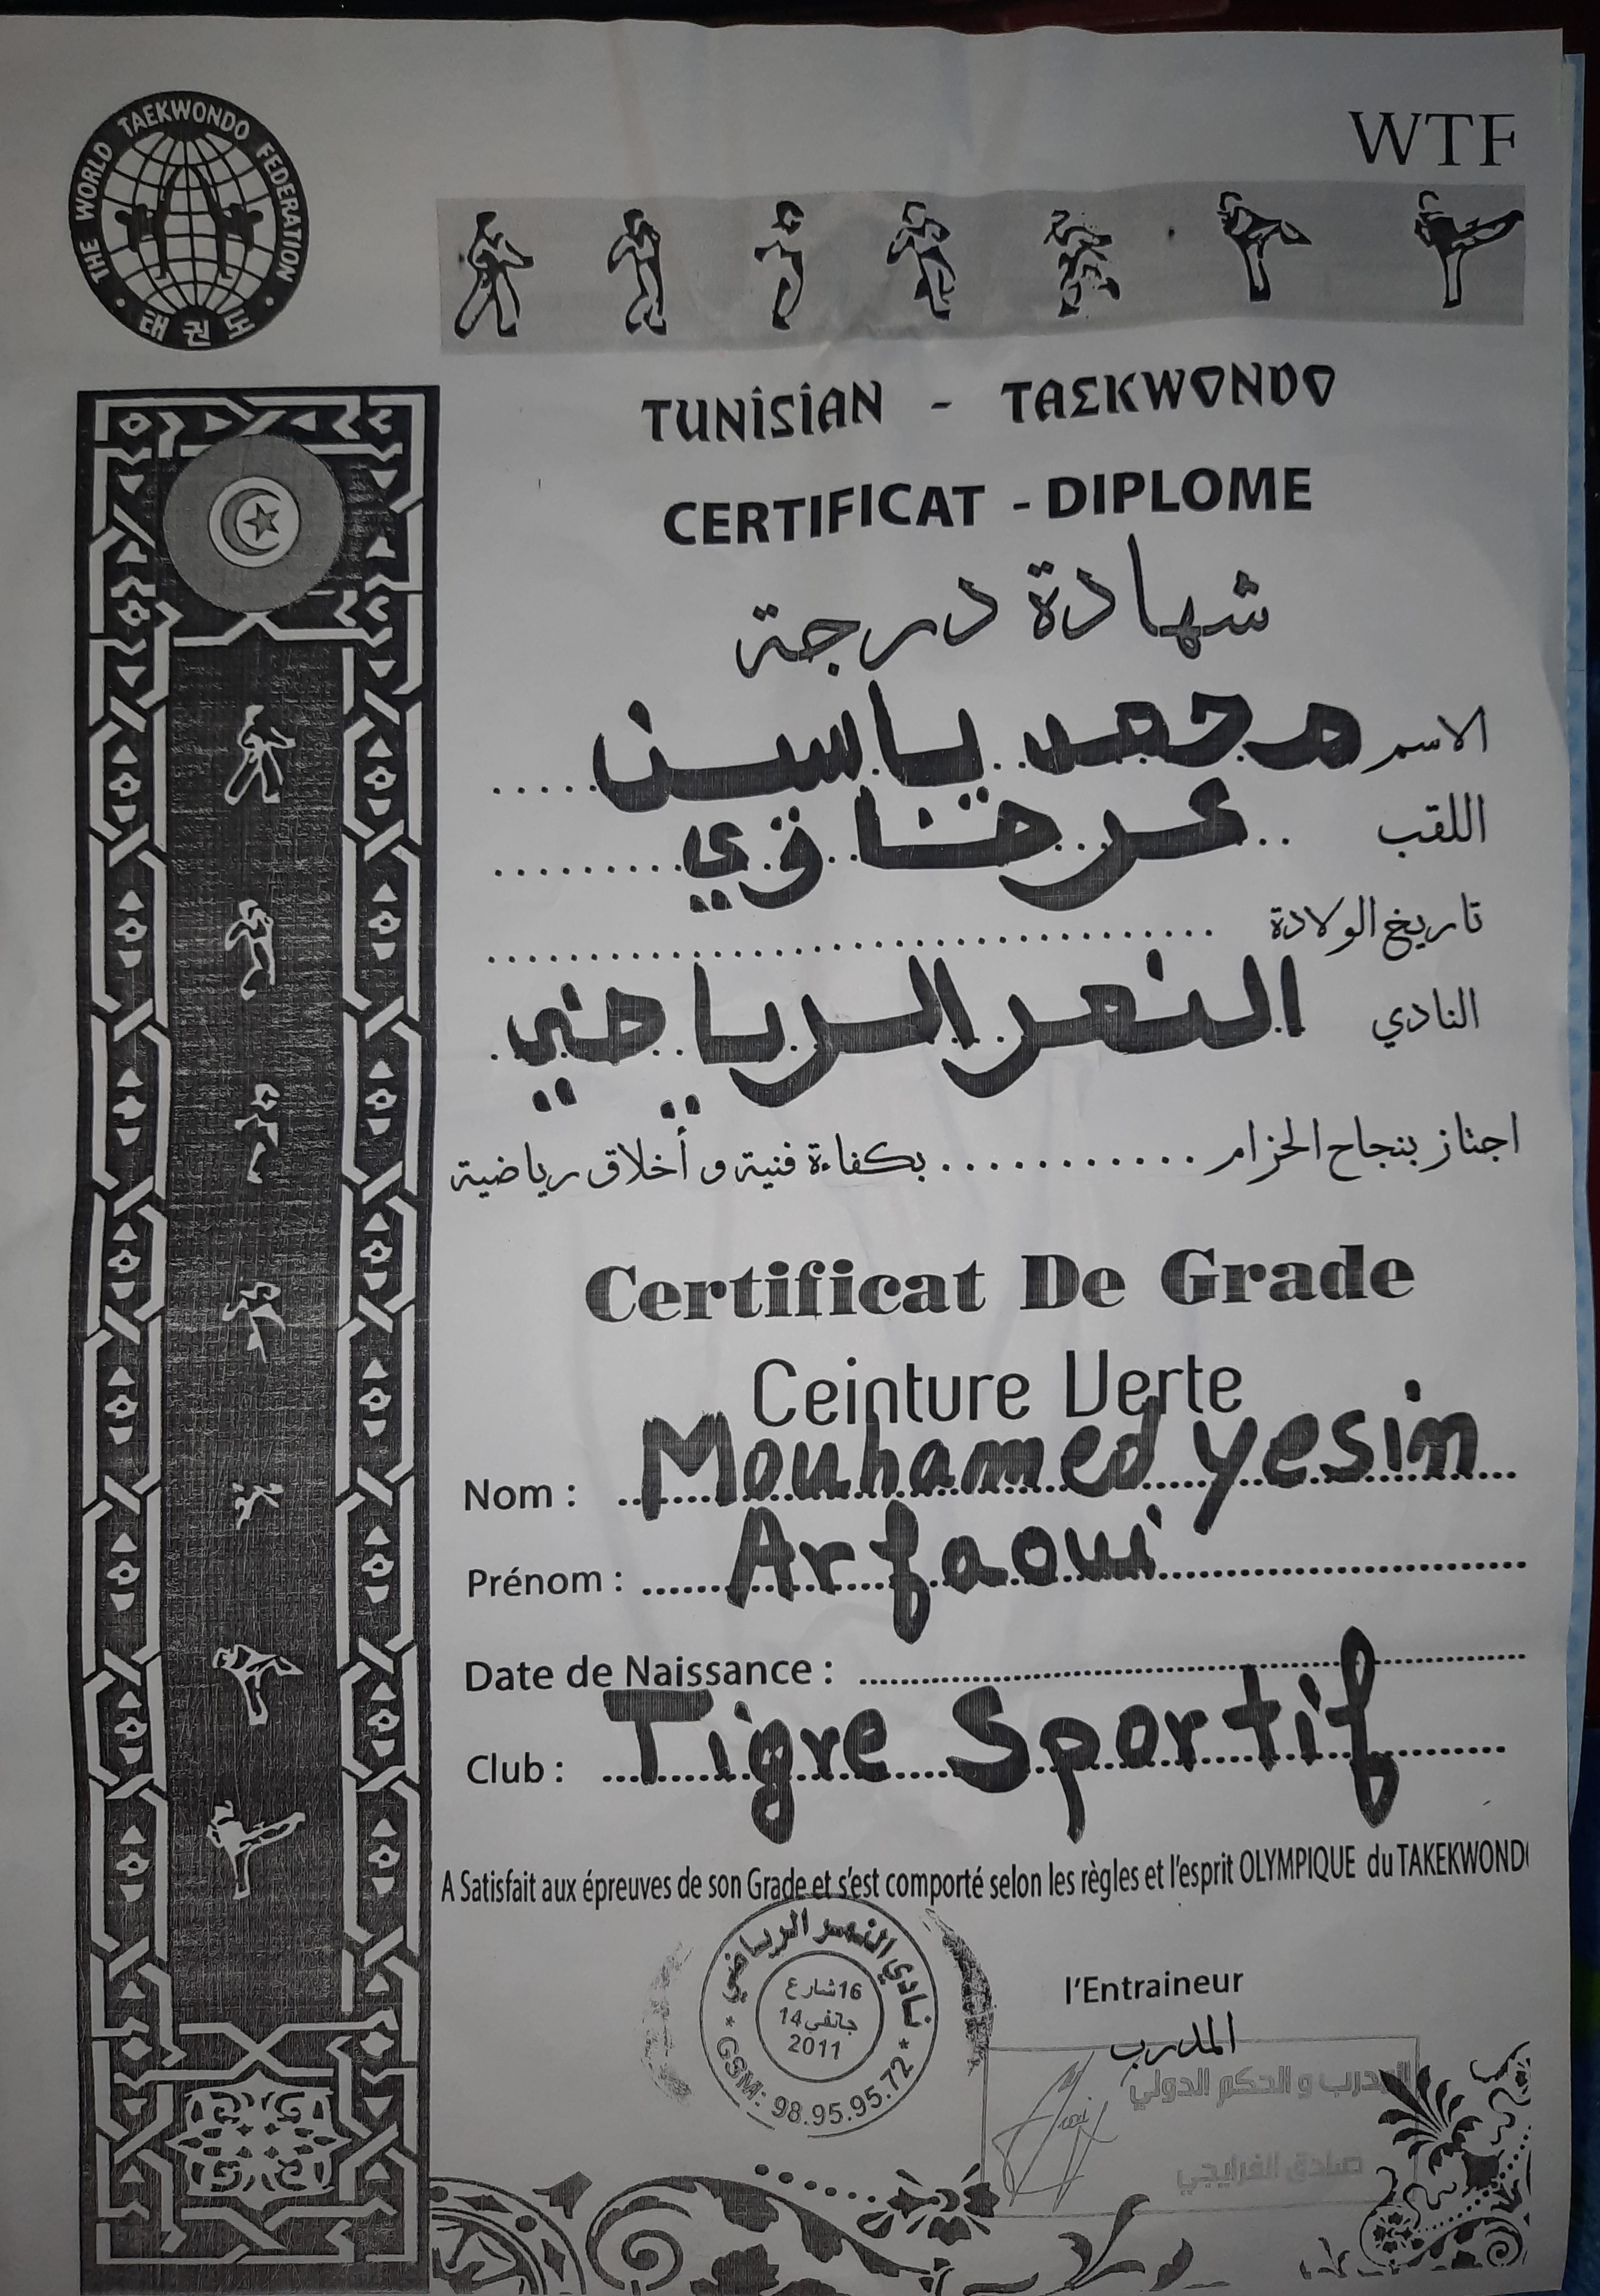 THE WORLD TAEKWONDO FEDERATION
태권도
WTF
TUNiSiAN - TAEKWONDO
CERTIFICAT - DIPLOME
شهادة درجة
الاسم محمد ياسن
اللقب .. عرفاوي
تاريخ الولادة
النادي النمر الرياضي
اجتاز بنجاح الحزام ............ بكفاءة فنية و أخلاق رياضية
Certificat De Grade
Ceinture Verte
Nom : Mouhamed yesin
Prénom : Arfaoui
Date de Naissance :
Club : Tigre Sportif
A Satisfait aux épreuves de son Grade et s'est comporté selon les règles et l'esprit OLYMPIQUE du TAKEKWONDO
نادي النمر الرياضي
16 شارع
14 جانفي
2011
* GSM: 98.95.95.72 *
l'Entraineur
المدرب
المدرب و الحكم الدولي
صادق الفرايجي